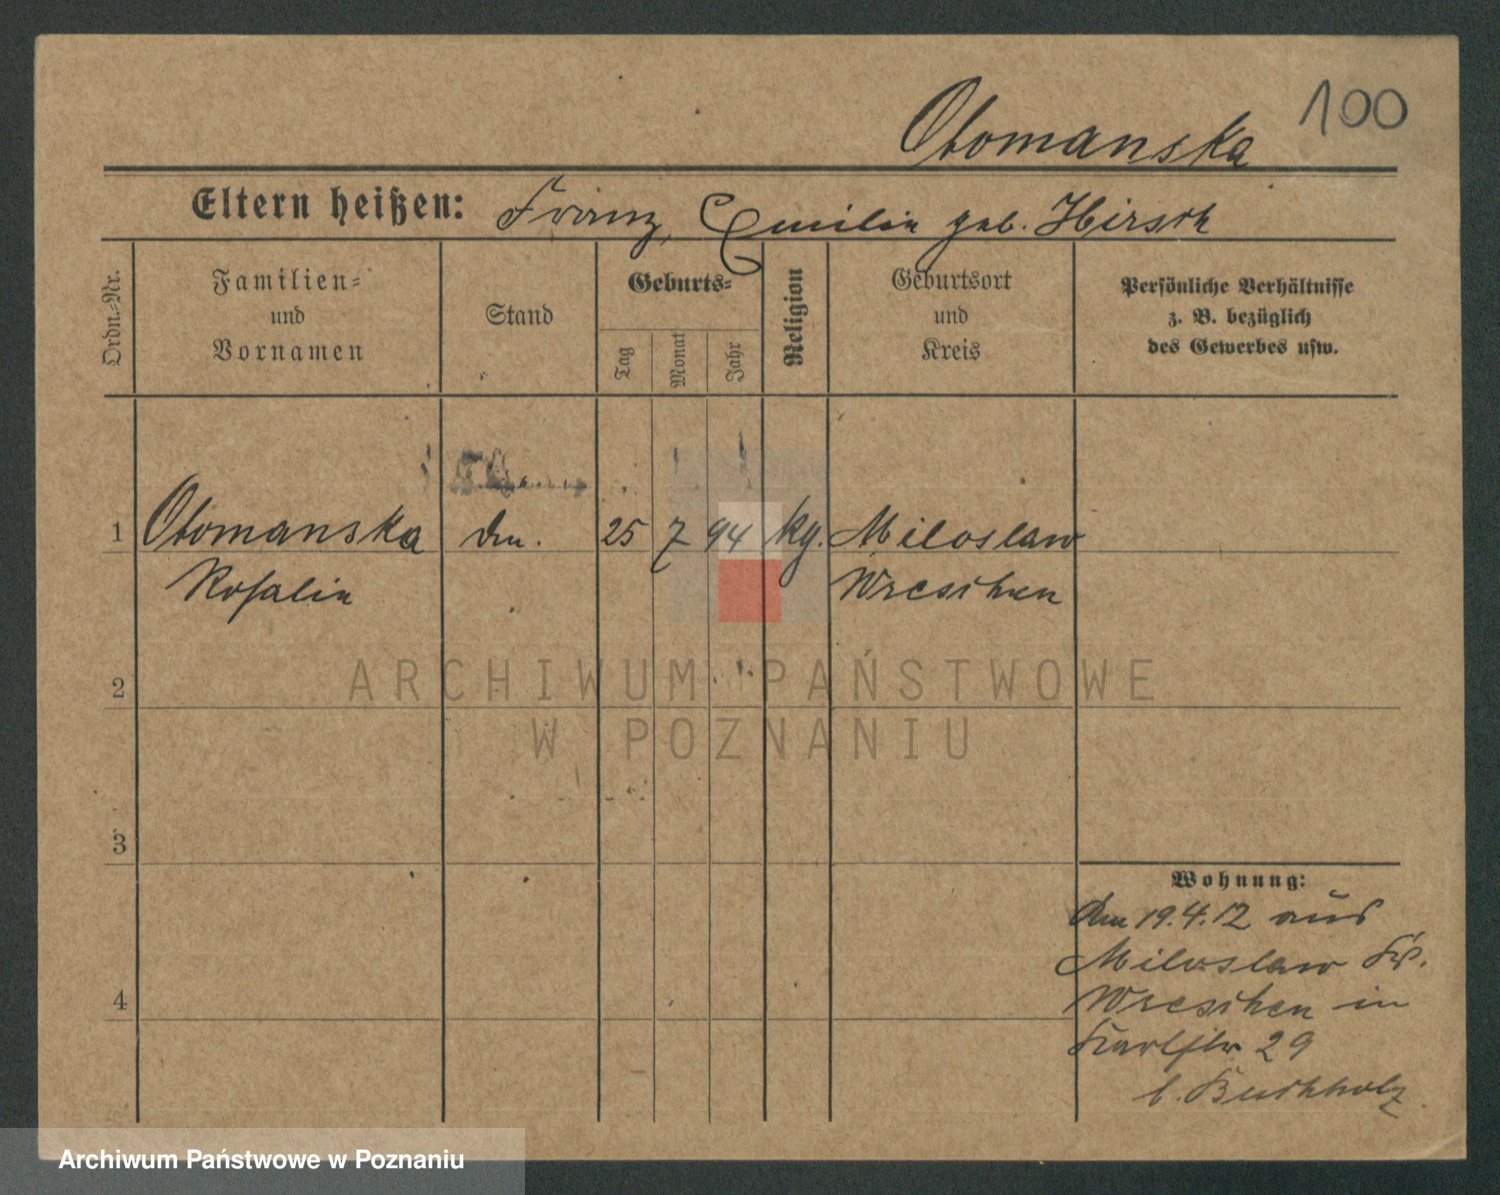 Otomanska 100
Eltern heißen: Franz, Emilie geb. Hirsch
Ordn.-Nr.
Familien-
und
Vornamen
Stand
Geburts-
Tag
Monat
Jahr
Religion
Geburtsort
und
Kreis
Persönliche Verhältnisse
z. B. bezüglich
des Gewerbes usw.
1 Otomanska 25 7 94 kg. Miloslaw
Rosalie Wreschen
2
3
4
Wohnung:
Am 19.4.12 aus
Miloslaw Kr.
Wreschen in
Karlstr 29
b. Buchholz
ARCHIWUM PAŃSTWOWE
W POZNANIU
Archiwum Państwowe w Poznaniu